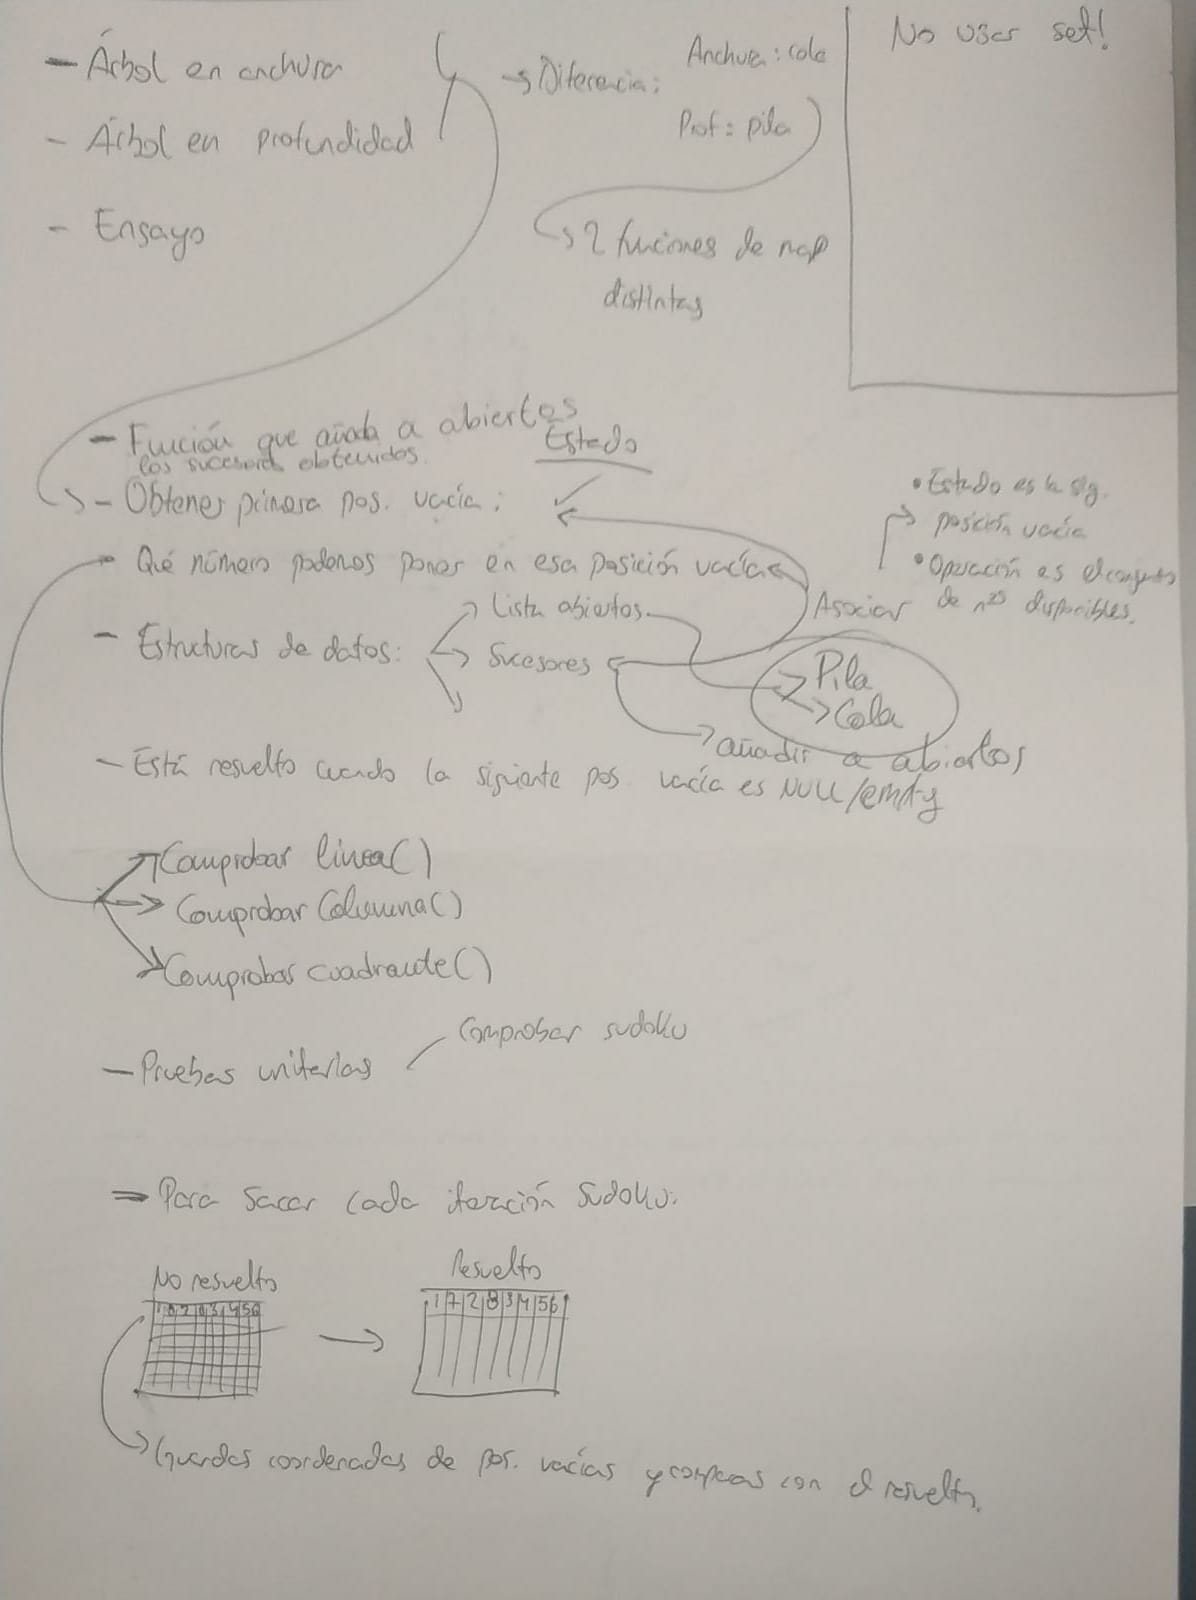 - Árbol en anchura
- Árbol en profundidad
- Ensayo
→ Diferencia:
Anchura: cola
Prof: pila
→ 2 funciones de
distintas
No usar set!
- Función que añada a abiertos
los sucesores obtenidos.
Estado
- Obtener primera pos. vacía:
- Qué número podemos poner en esa posición vacía
• Estado es la sig.
posición vacía
• Operación es el conjunto
de nºs disponibles.
Asociar
- Estructuras de datos:
→ Lista abiertos
→ Sucesores
→ Pila
→ Cola
→ añadir a abiertos
- Está resuelto cuando la siguiente pos. vacía es NULL/empty
Comprobar línea()
→ Comprobar Columna()
Comprobar cuadrante()
- Pruebas unitarias
Comprobar sudoku
- Para sacar cada iteración sudoku:
No resuelto
→
Resuelto
1 7 2 8 3 4 5 6
→ Guardas coordenadas de pos. vacías y comparas con el resuelto.